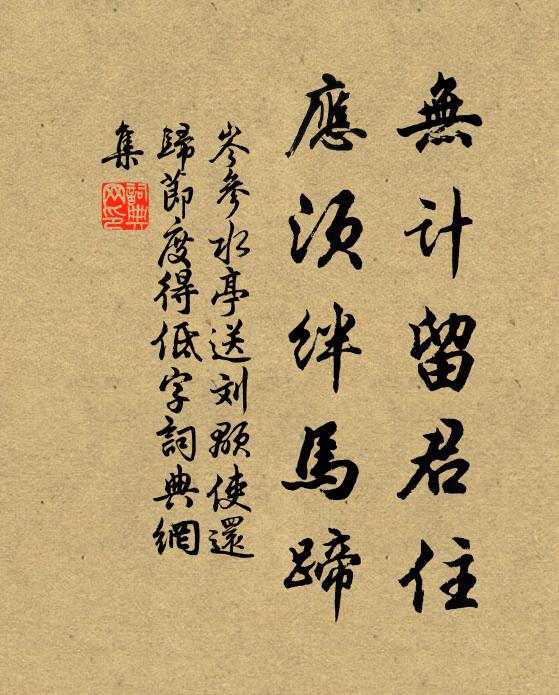 無計留君住
應須絆馬蹄
岑參水亭送刘顒使還
歸節度得低字詞典網
集
詞典
网印